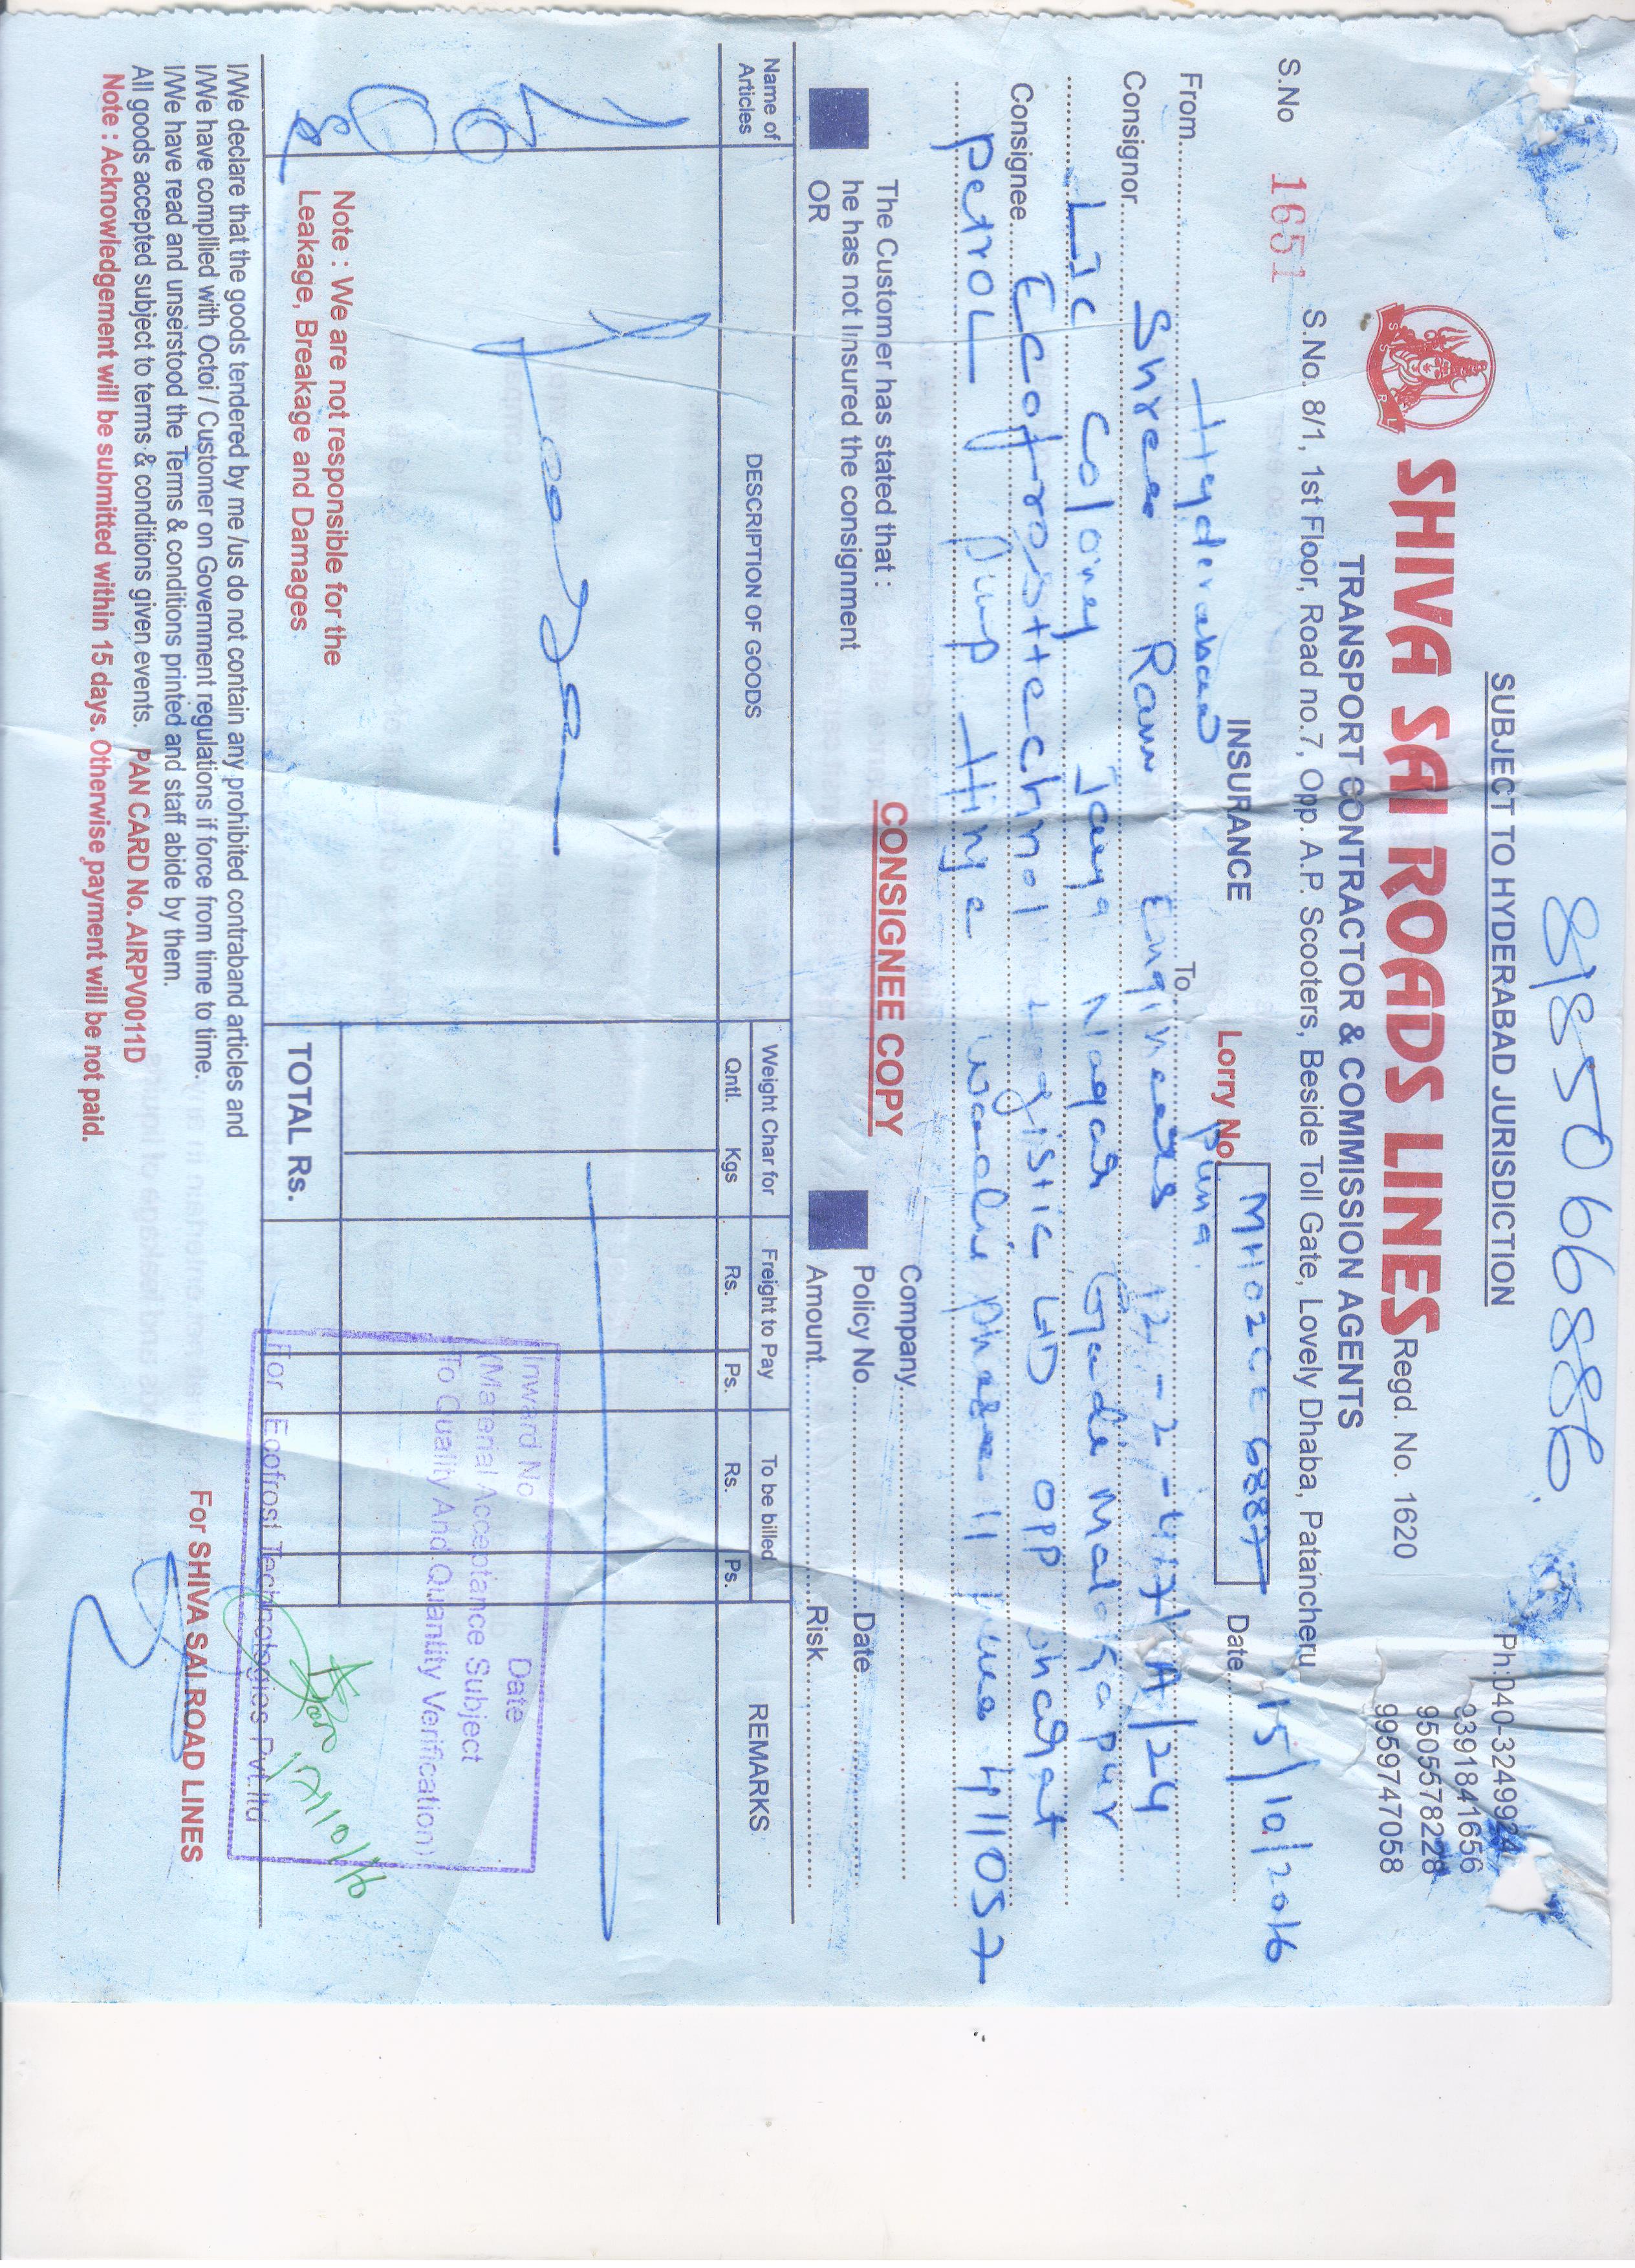 8985066886
SUBJECT TO HYDERABAD JURISDICTION
Ph:040-3249924
9391841656
9505578228
9959747058
SHIVA SAI ROADS LINES Regd. No. 1620
TRANSPORT CONTRACTOR & COMMISSION AGENTS
S.No. 8/1, 1st Floor, Road no.7, Opp. A.P. Scooters, Beside Toll Gate, Lovely Dhaba, Patancheru
S.No 1651
INSURANCE Lorry No. Date 15/10/2016
From Hyderabad To Puna
Consignor Shree Ram Engineers 12-2-417/A/24
Lic Coloney Jaya Nagar Gudi Malkapur
Consignee Ecofrosttechnol Logistic LTD opp bharat
petrol pump Hinje Wadi phase II Pune 411057
CONSIGNEE COPY
The Customer has stated that :
he has not Insured the consignment
OR
Company
Policy No Date
Amount Risk
Name of Articles DESCRIPTION OF GOODS Weight Char for Freight to Pay To be billed REMARKS
Qntl. Kgs Rs. Ps. Rs. Ps.
Inward No Date
(Material Acceptance Subject
To Quality And Quantity Verification)
For Ecofrost Technologies Pvt.ltd
Note : We are not responsible for the
Leakage, Breakage and Damages
TOTAL Rs.
I/We declare that the goods tendered by me /us do not contain any prohibited contraband articles and
I/We have compllied with Octoi / Customer on Government regulations if force from time to time.
I/We have read and unserstood the Terms & conditions printed and staff abide by them.
All goods accepted subject to terms & conditions given events. PAN CARD No. AIRPV0011D
Note : Acknowledgement will be submitted within 15 days. Otherwise payment will be not paid.
For SHIVA SAI ROAD LINES